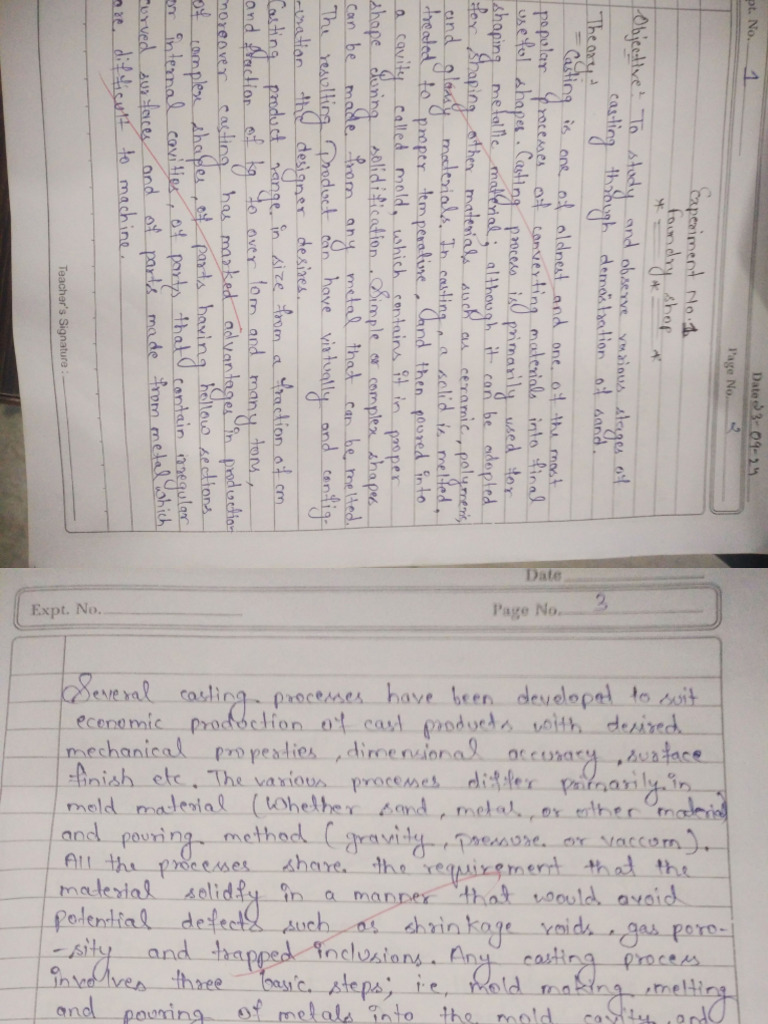 Expt. No. 1
Date 23-09-24
Page No. 2
Experiment No. 1
Foundry shop
Objective: To study and observe various stages of
casting through demostration of sand.
Theory:
Casting is one of oldnest and one of the most
popular processes of converting materials into final
useful shapes. Casting process is primarily used for
shaping metallic material; although it can be adopted
for shaping other materials such as ceramic, polymeric,
and glassy materials. In casting, a solid is melted,
treated to proper temperature, (and then poured into
a cavity called mold, which contains it in proper
shape during solidification. Simple or complex shapes
can be made from any metal that can be melted.
The resulting product can have virtually and config-
-uration the designer desires.
Casting product range in size from a fraction of cm
and fraction of kg to over 10m and many tons,
moreover casting has marked advantages in productio-
of complex shapes, of parts having hollow sections
or internal cavities, of parts that contain irregular
curved surfaces and of parts made from metal which
are difficult to machine.
Teacher's Signature :
Date
Expt. No.
Page No. 3
Several casting processes have been developed to suit
economic production of cast products with desired
mechanical properties, dimensional accuracy, surface
finish etc. The various processes differ primarily in
mold material (whether sand, metal, or other material
and pouring method (gravity, pressure or vaccum).
All the processes share the requirement that the
material solidfy in a manner that would avoid
potential defects such as shrinkage voids, gas poro-
-sity and trapped inclusions. Any casting process
involves three basic steps; i.e, mold making, melting
and pouring of metals into the mold cavity, and